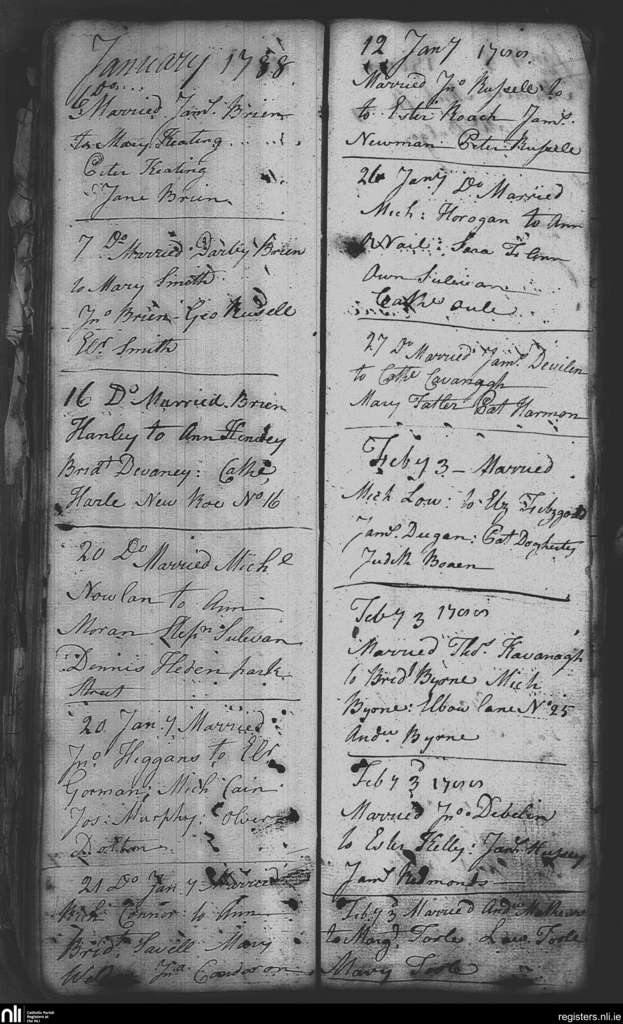 January 1788
Do
Married Jams. Brien
to Mary Keating
Peter Keating
Jane Brien
7 Do Married Darby Brien
to Mary Smith
Jno Brien Geo Russell
Elr. Smith
16 Do Married Brien
Hanley to Ann
Bridt Devaney: Cathe
Harle New Roe No 16
20 Do Married Michl
Nowlan to Ann
Moran Stepn Sulivan
Dennis park
Street
20 Jany Married
Jno Higgans to Elr
Gorman; Mich Cain
Jos: Murphy: Olver
Dolton
21 Do Jany Married
Richd Connor to Ann
Bridt. Savell Mary
Jna
12 Jany 1788.
Married Jno Russell to
to Ester Roach Jams.
Newman Peter Russell
26 Jany Do Married
Mich: Horogan to Ann
Nail: Ann
Own Sulivan
Cathe
27 Do Married Jams. Devilin
to Cathe Cavanagh
Mary Pat Harmon
Feby 3 - Married
Mich Low: to Elz Fitzgood
Jams. Dugan: Pat Dogherty
Judith
Feby 3 1788
Married Thos. Kavanagh
to Brid Byrne Mich
Byrne: Elbow lane No 25
Andw Byrne
Feby 3 1788
Married Jno. Debelin
to Ester Kelly: Jams.
Jams. Redmonds
Feby 3 Married Andw
to Margt. Toole Law Toole
Mary Toole
nli
Catholic Parish
Registers at
the NLI
registers.nli.ie